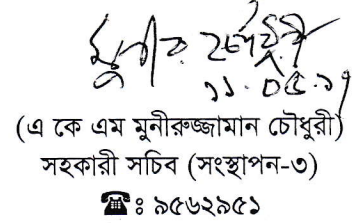 মুনীর চৌধুরী
১১.০৫.১৭
(এ কে এম মুনীরুজ্জামান চৌধুরী)
সহকারী সচিব (সংস্থাপন-৩)
☎ঃ ৯৫৬২৯৫১